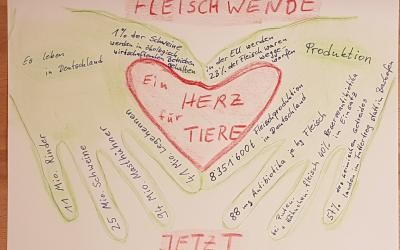 FLEISCHWENDE
Es leben
in Deutschland
1% der Schweine
werden in ökologisch
wirtschaftenden Betrieben
gehalten
in der EU werden
23% der Fleischwaren
wegge
worfen
Produktion
Ein
HERZ
für
TIERE
11 Mio. Rinder
25 Mio. Schweine
94 Mio Masthühner
41 Mio Legehennen
8351600t Fleischproduktion
in Deutschland
88 mg Antibiotika je kg Fleisch
bei Puten
& Hähnchenfleisch 40% Reserveantibiotika
in Einsatz
57% des
Getreides
landen im Futtertrog statt in Backofen
JETZT